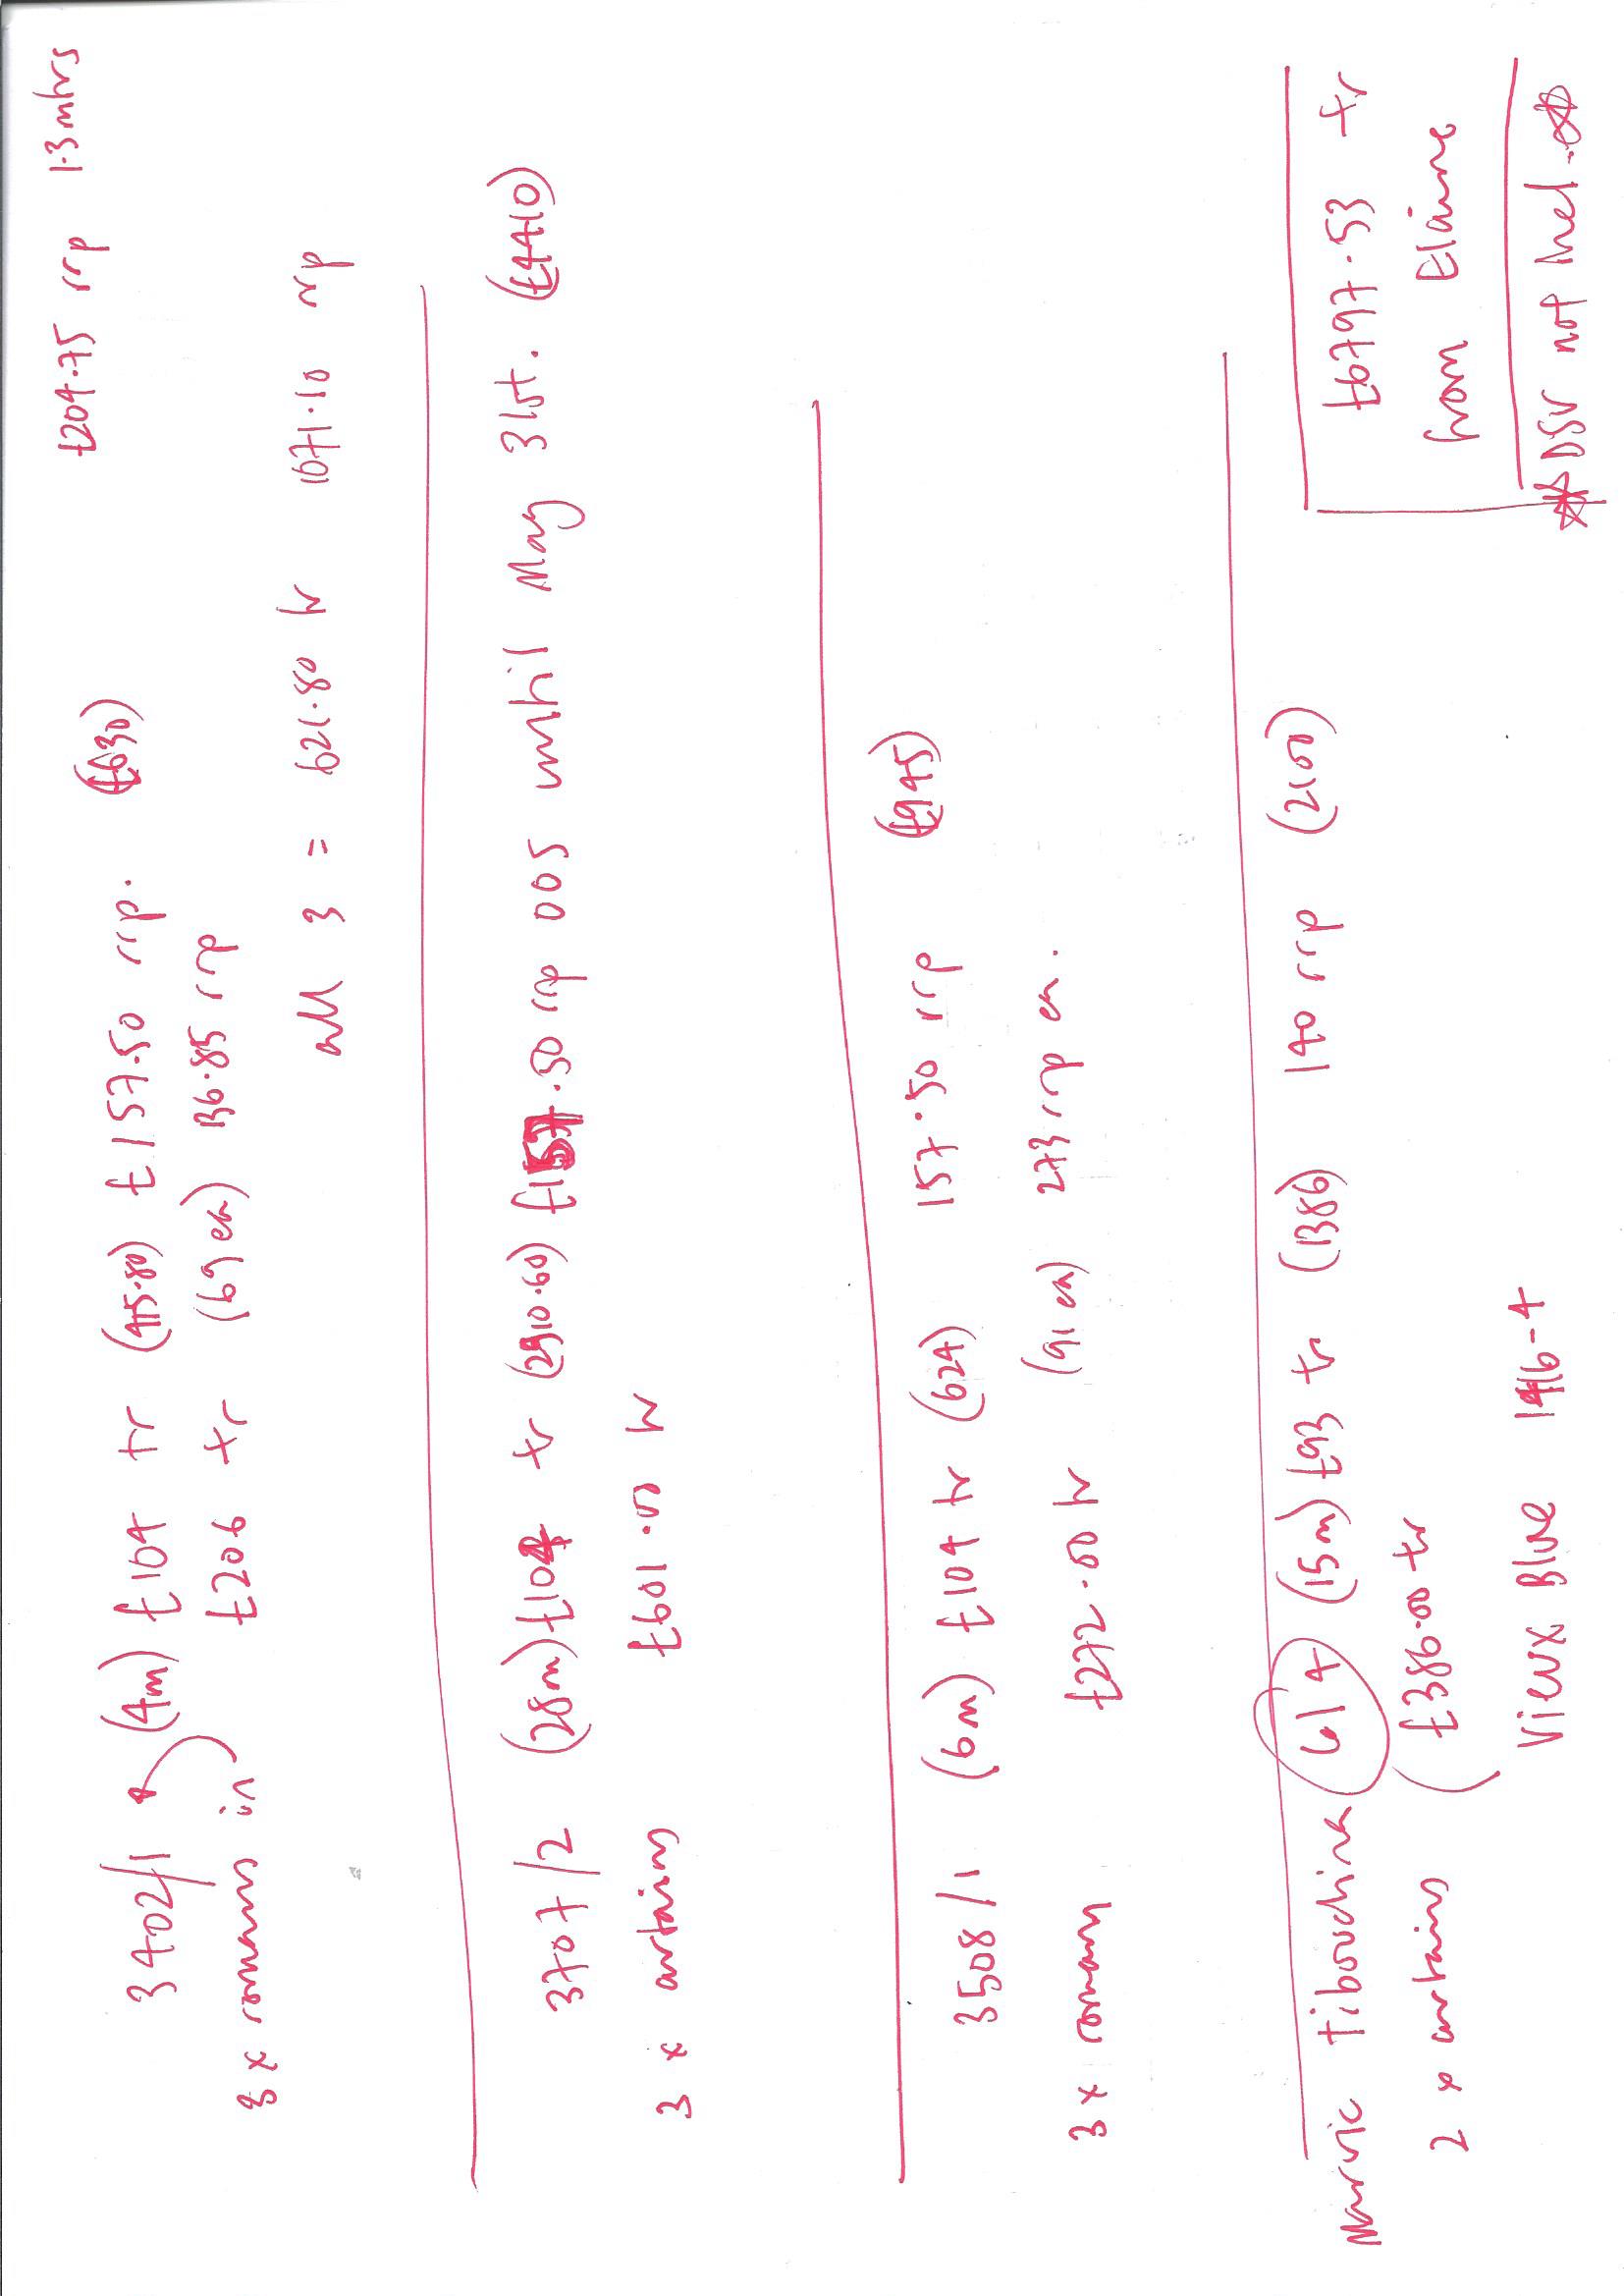 £204.75 rrp 1.3 mhrs
3402/1 (4m) £104 tr (415.80) £157.50 rrp. (£630)
3 x romans in £206 tr (69 ea) 136.85 rrp
all 3 = 621.80 tr 1671.10 rrp
3707/2 (28m) £104 tr (2910.60) £157.50 rrp OOS until May 31st. (£4410)
3 x curtains £601.00 tr
3508/1 (6m) £104 tr (624) 157.50 rrp (£945)
3 x romans £272.00 tr (91 ea) 273 rrp ea.
Marvic Tibouchina 614 (15m) £93 tr (1386) 140 rrp (2100)
2 x curtains £386.00 tr
Vieux Blue
£6797.53 tr
from Elaine
* DSV not incl. *